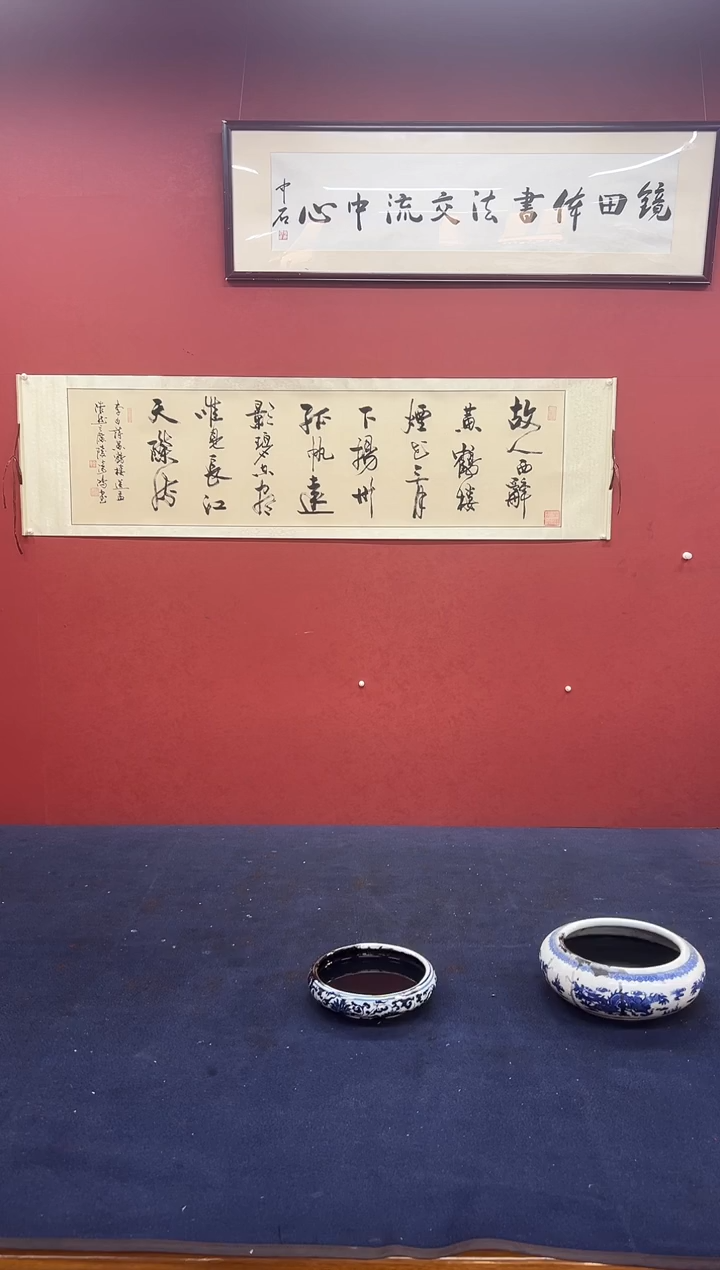 鏡田体書法交流中心
中石
故人西辭
黄鶴楼
煙花三月
下揚州
孤帆遠
影碧空尽
唯見長江
天際流
李白詩黄鶴楼送孟
浩然之廣陵 書